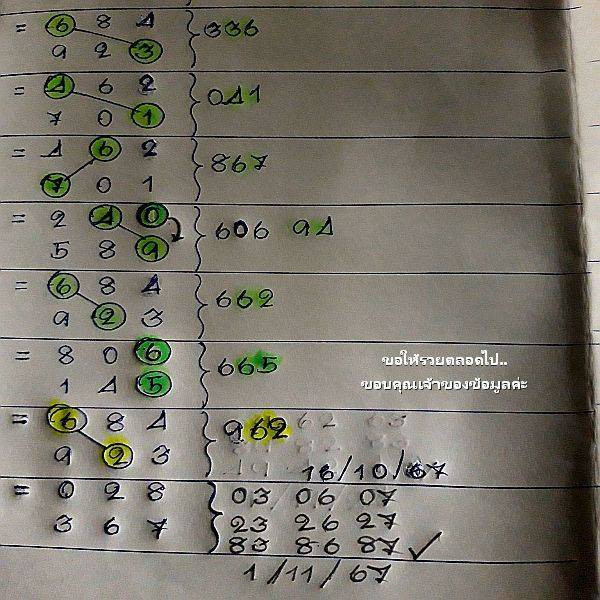 = 6 8 4 } 336
9 2 3
= 4 6 2 } 041
7 0 1
= 4 6 2 } 867
7 0 1
= 2 4 0 } 606 94
5 8 9
= 6 8 4 } 662
9 2 3
= 8 0 6 } 665
1 4 5
ขอให้รวยตลอดไป..
ขอบคุณเจ้าของข้อมูลค่ะ
= 6 8 4 } 962
9 2 3
16/10/67
= 0 2 8 } 03 06 07
3 6 7 23 26 27
83 86 87 ✓
1/11/67